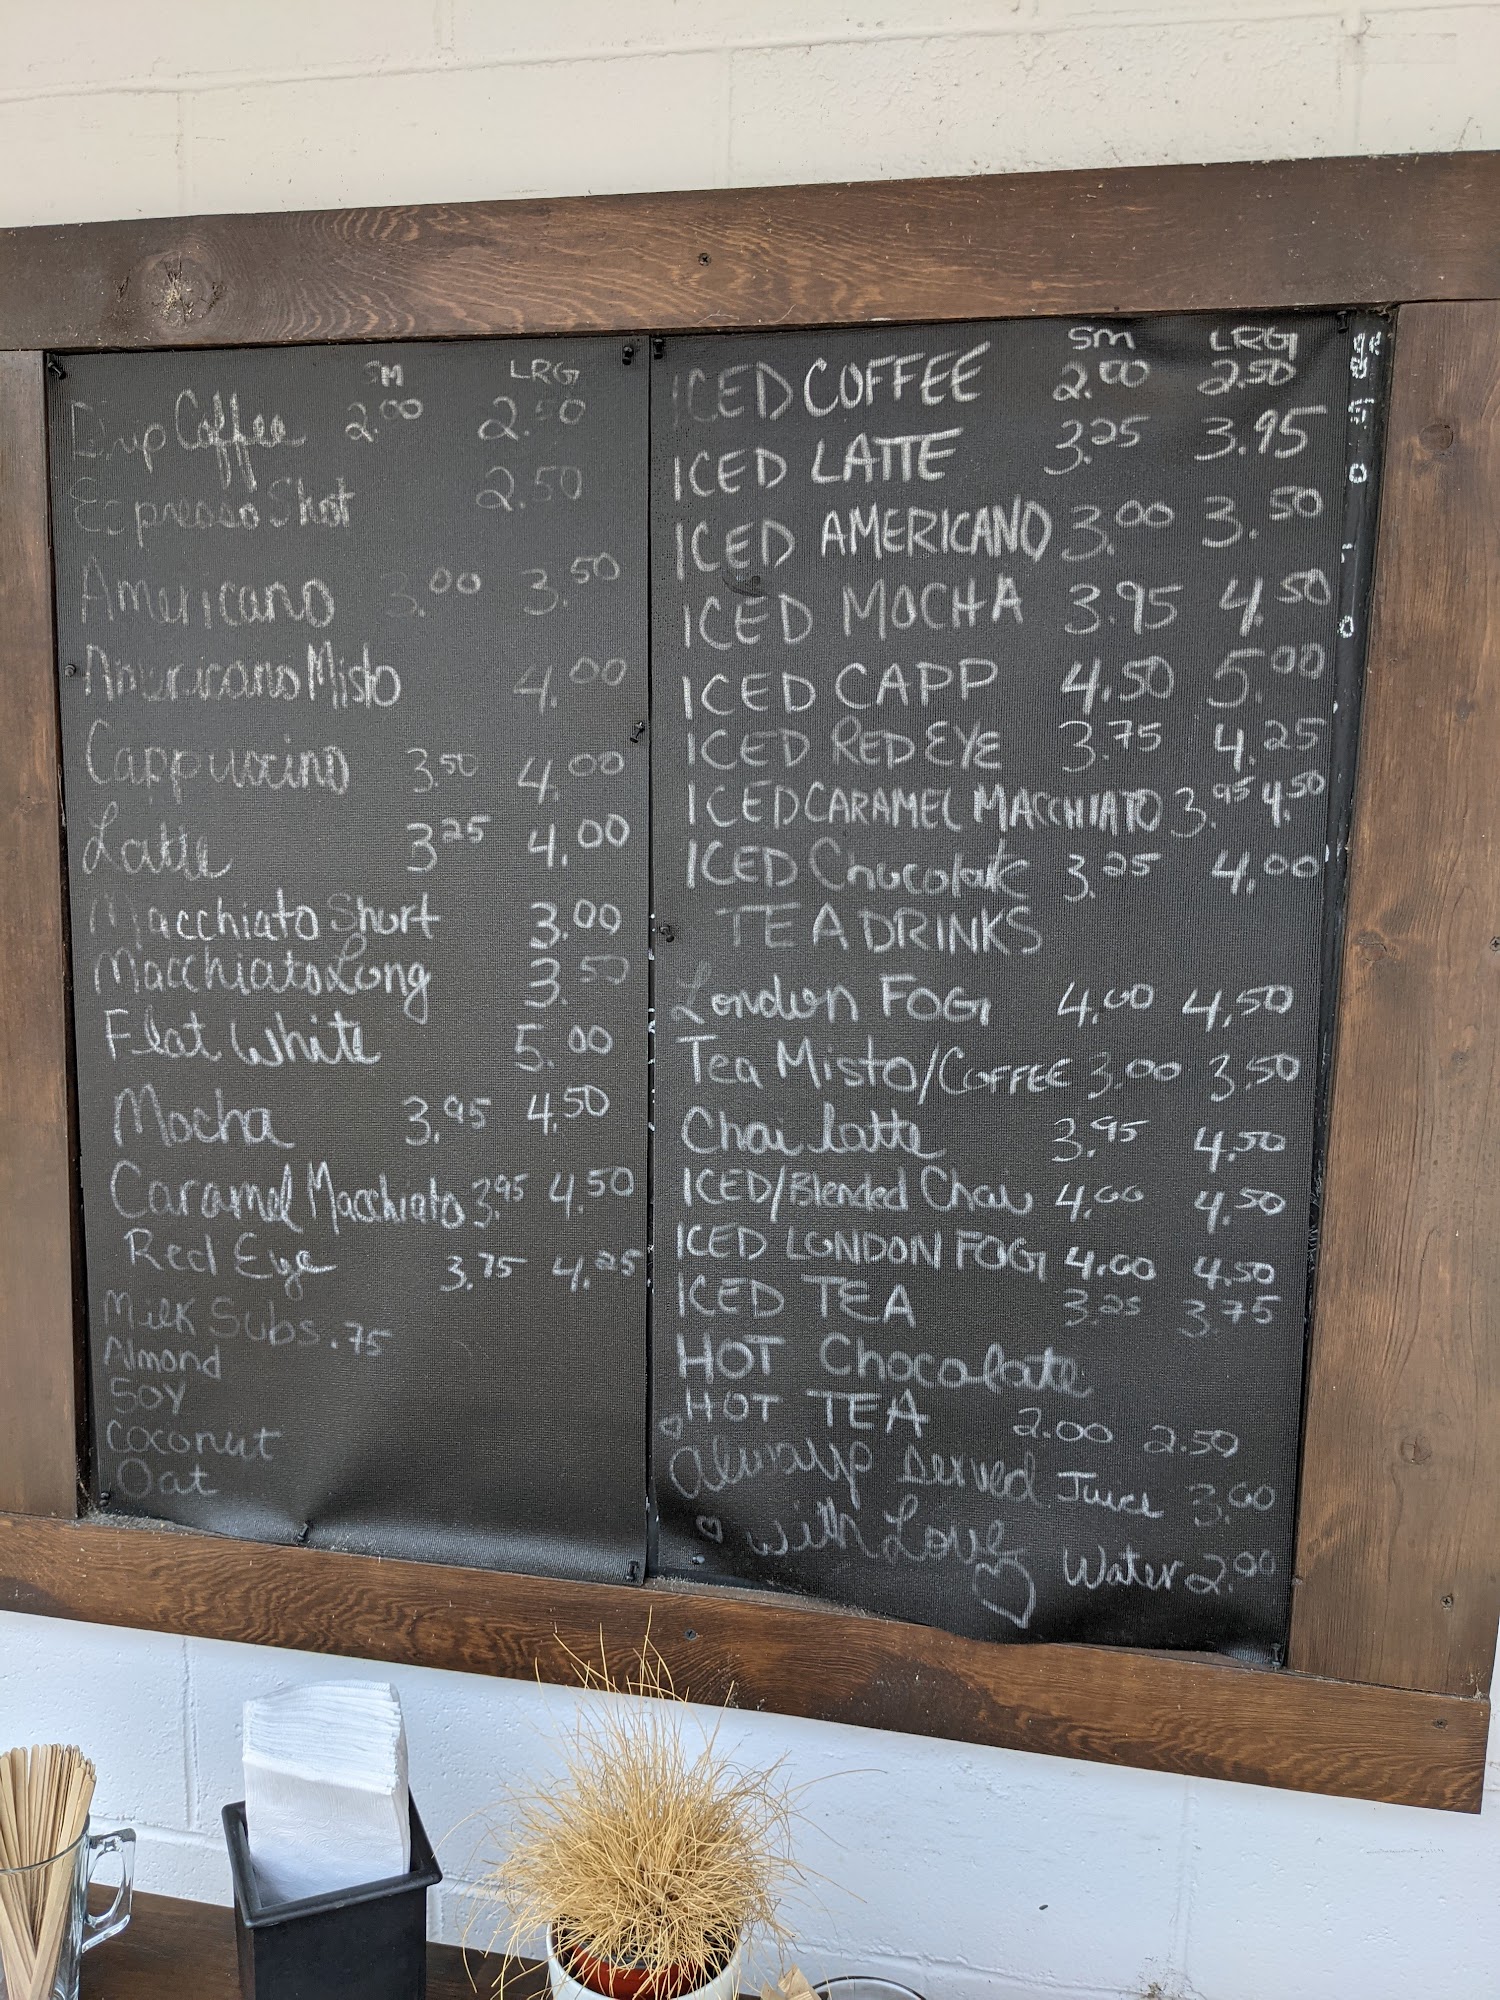 SM LRG
Drip Coffee 2.00 2.50
Espresso Shot 2.50
Americano 3.00 3.50
Americano Misto 4.00
Cappuccino 3.50 4.00
Latte 3.25 4.00
Macchiato Short 3.00
Macchiato Long 3.50
Flat White 5.00
Mocha 3.95 4.50
Caramel Macchiato 3.95 4.50
Red Eye 3.75 4.25
Milk Subs .75
Almond
SOY
Coconut
Oat
SM LRG
ICED COFFEE 2.00 2.50
ICED LATTE 3.25 3.95
ICED AMERICANO 3.00 3.50
ICED MOCHA 3.95 4.50
ICED CAPP 4.50 5.00
ICED RED EYE 3.75 4.25
ICED CARAMEL MACCHIATO 3.95 4.50
ICED Chocolate 3.25 4.00
TEA DRINKS
London FOG 4.00 4.50
Tea Misto/COFFEE 3.00 3.50
Chai latte 3.95 4.50
ICED/Blended Chai 4.00 4.50
ICED LONDON FOG 4.00 4.50
ICED TEA 3.25 3.75
HOT Chocolate
HOT TEA 2.00 2.50
Always served Juice 3.00
with Love Water 2.00